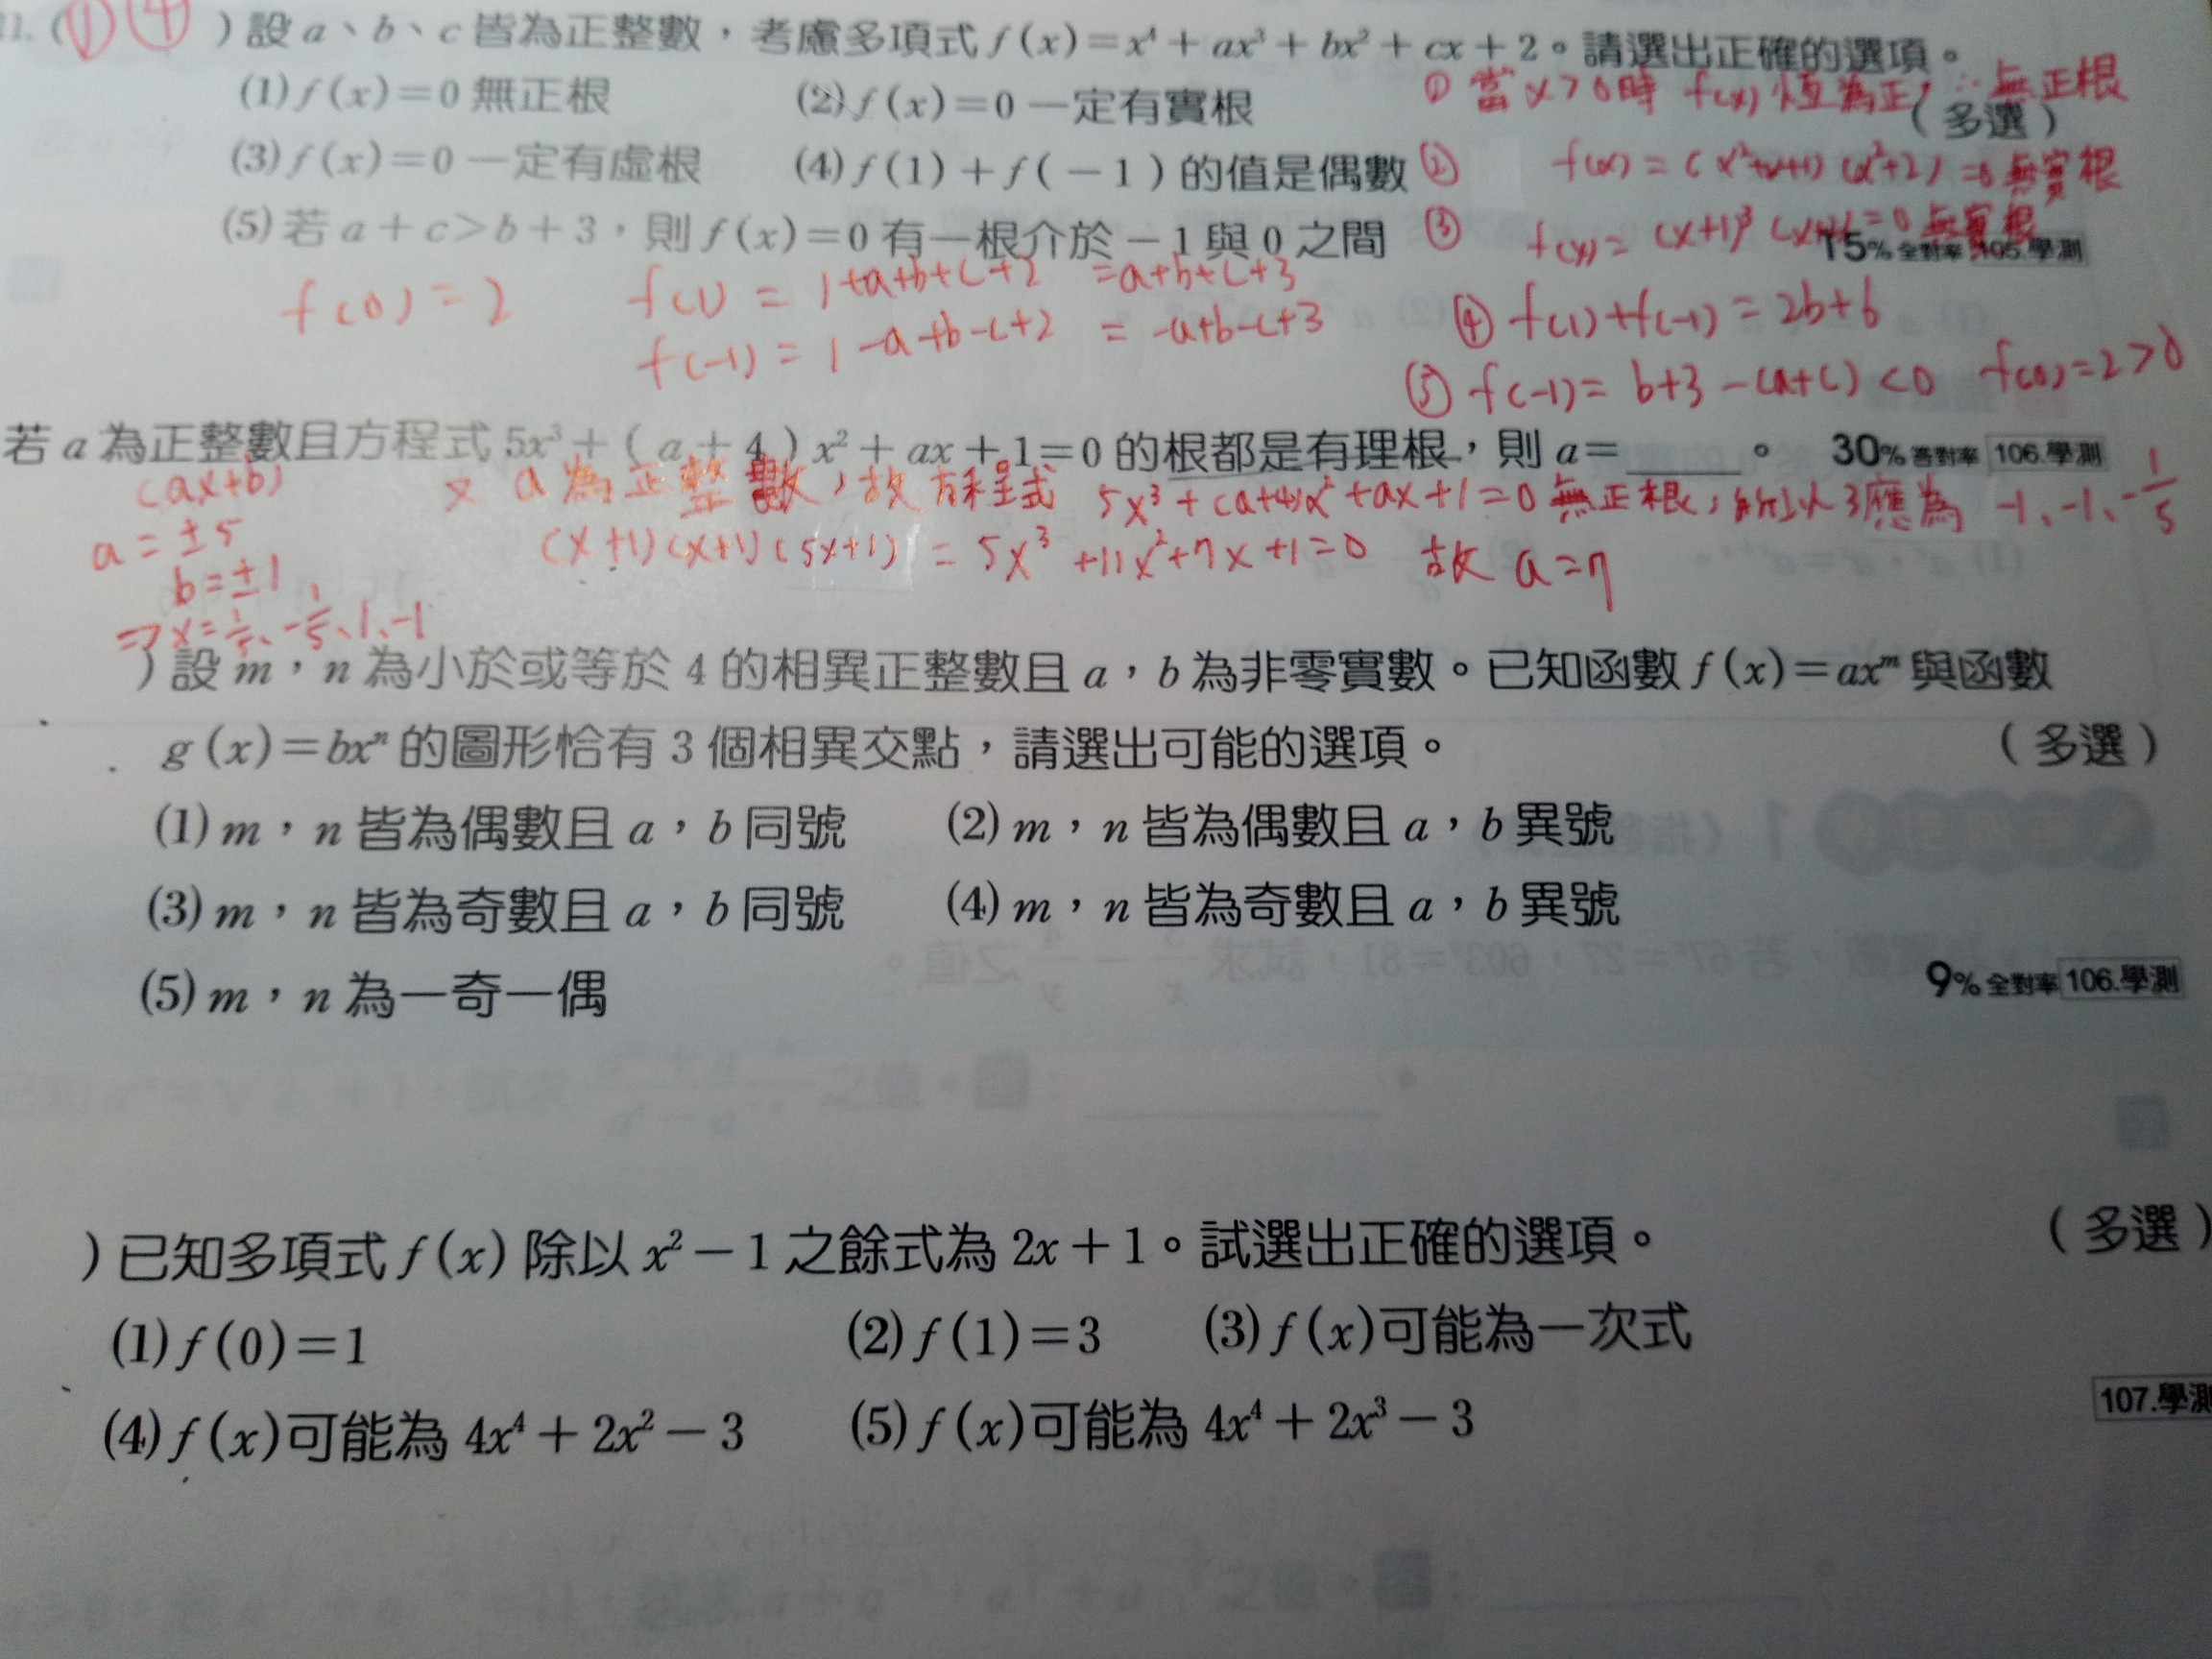 11. (①④)設 a、b、c 皆為正整數，考慮多項式 f(x)=x⁴+ax³+bx²+cx+2。請選出正確的選項。
(多選)
(1) f(x)=0 無正根 (2) f(x)=0 一定有實根
(3) f(x)=0 一定有虛根 (4) f(1)+f(-1) 的值是偶數
(5) 若 a+c>b+3，則 f(x)=0 有一根介於 -1 與 0 之間
15% 全對率 105.學測
① 當 x>0時 f(x) 恆為正, ∴無正根
② f(x) = (x²+x+1)(x²+2) =0 無實根
③ f(x) = (x+1)³(x+2)=0 無實根
f(0)=2 f(1) = 1+a+b+c+2 =a+b+c+3
f(-1) = 1-a+b-c+2 = -a+b-c+3
④ f(1)+f(-1) = 2b+6
⑤ f(-1)= b+3-(a+c) <0 f(0)=2>0
若 a 為正整數且方程式 5x³+(a+4)x²+ax+1=0 的根都是有理根，則 a=______。 30% 答對率 106.學測
(ax+b)
a=±5
b=±1
⇒x=1/5、-1/5、1、-1
又 a 為正整數，故方程式 5x³+(a+4)x²+ax+1=0 無正根，所以3應為 -1、-1、-1/5
(x+1)(x+1)(5x+1) = 5x³+11x²+7x+1=0 故 a=7
)設 m，n 為小於或等於 4 的相異正整數且 a，b 為非零實數。已知函數 f(x)=axᵐ 與函數
g(x)=bxⁿ 的圖形恰有 3 個相異交點，請選出可能的選項。 (多選)
(1) m，n 皆為偶數且 a，b 同號 (2) m，n 皆為偶數且 a，b 異號
(3) m，n 皆為奇數且 a，b 同號 (4) m，n 皆為奇數且 a，b 異號
(5) m，n 為一奇一偶 9% 全對率 106.學測
)已知多項式 f(x) 除以 x²-1 之餘式為 2x+1。試選出正確的選項。 (多選)
(1) f(0)=1 (2) f(1)=3 (3) f(x)可能為一次式
(4) f(x)可能為 4x⁴+2x²-3 (5) f(x)可能為 4x⁴+2x³-3
107.學測